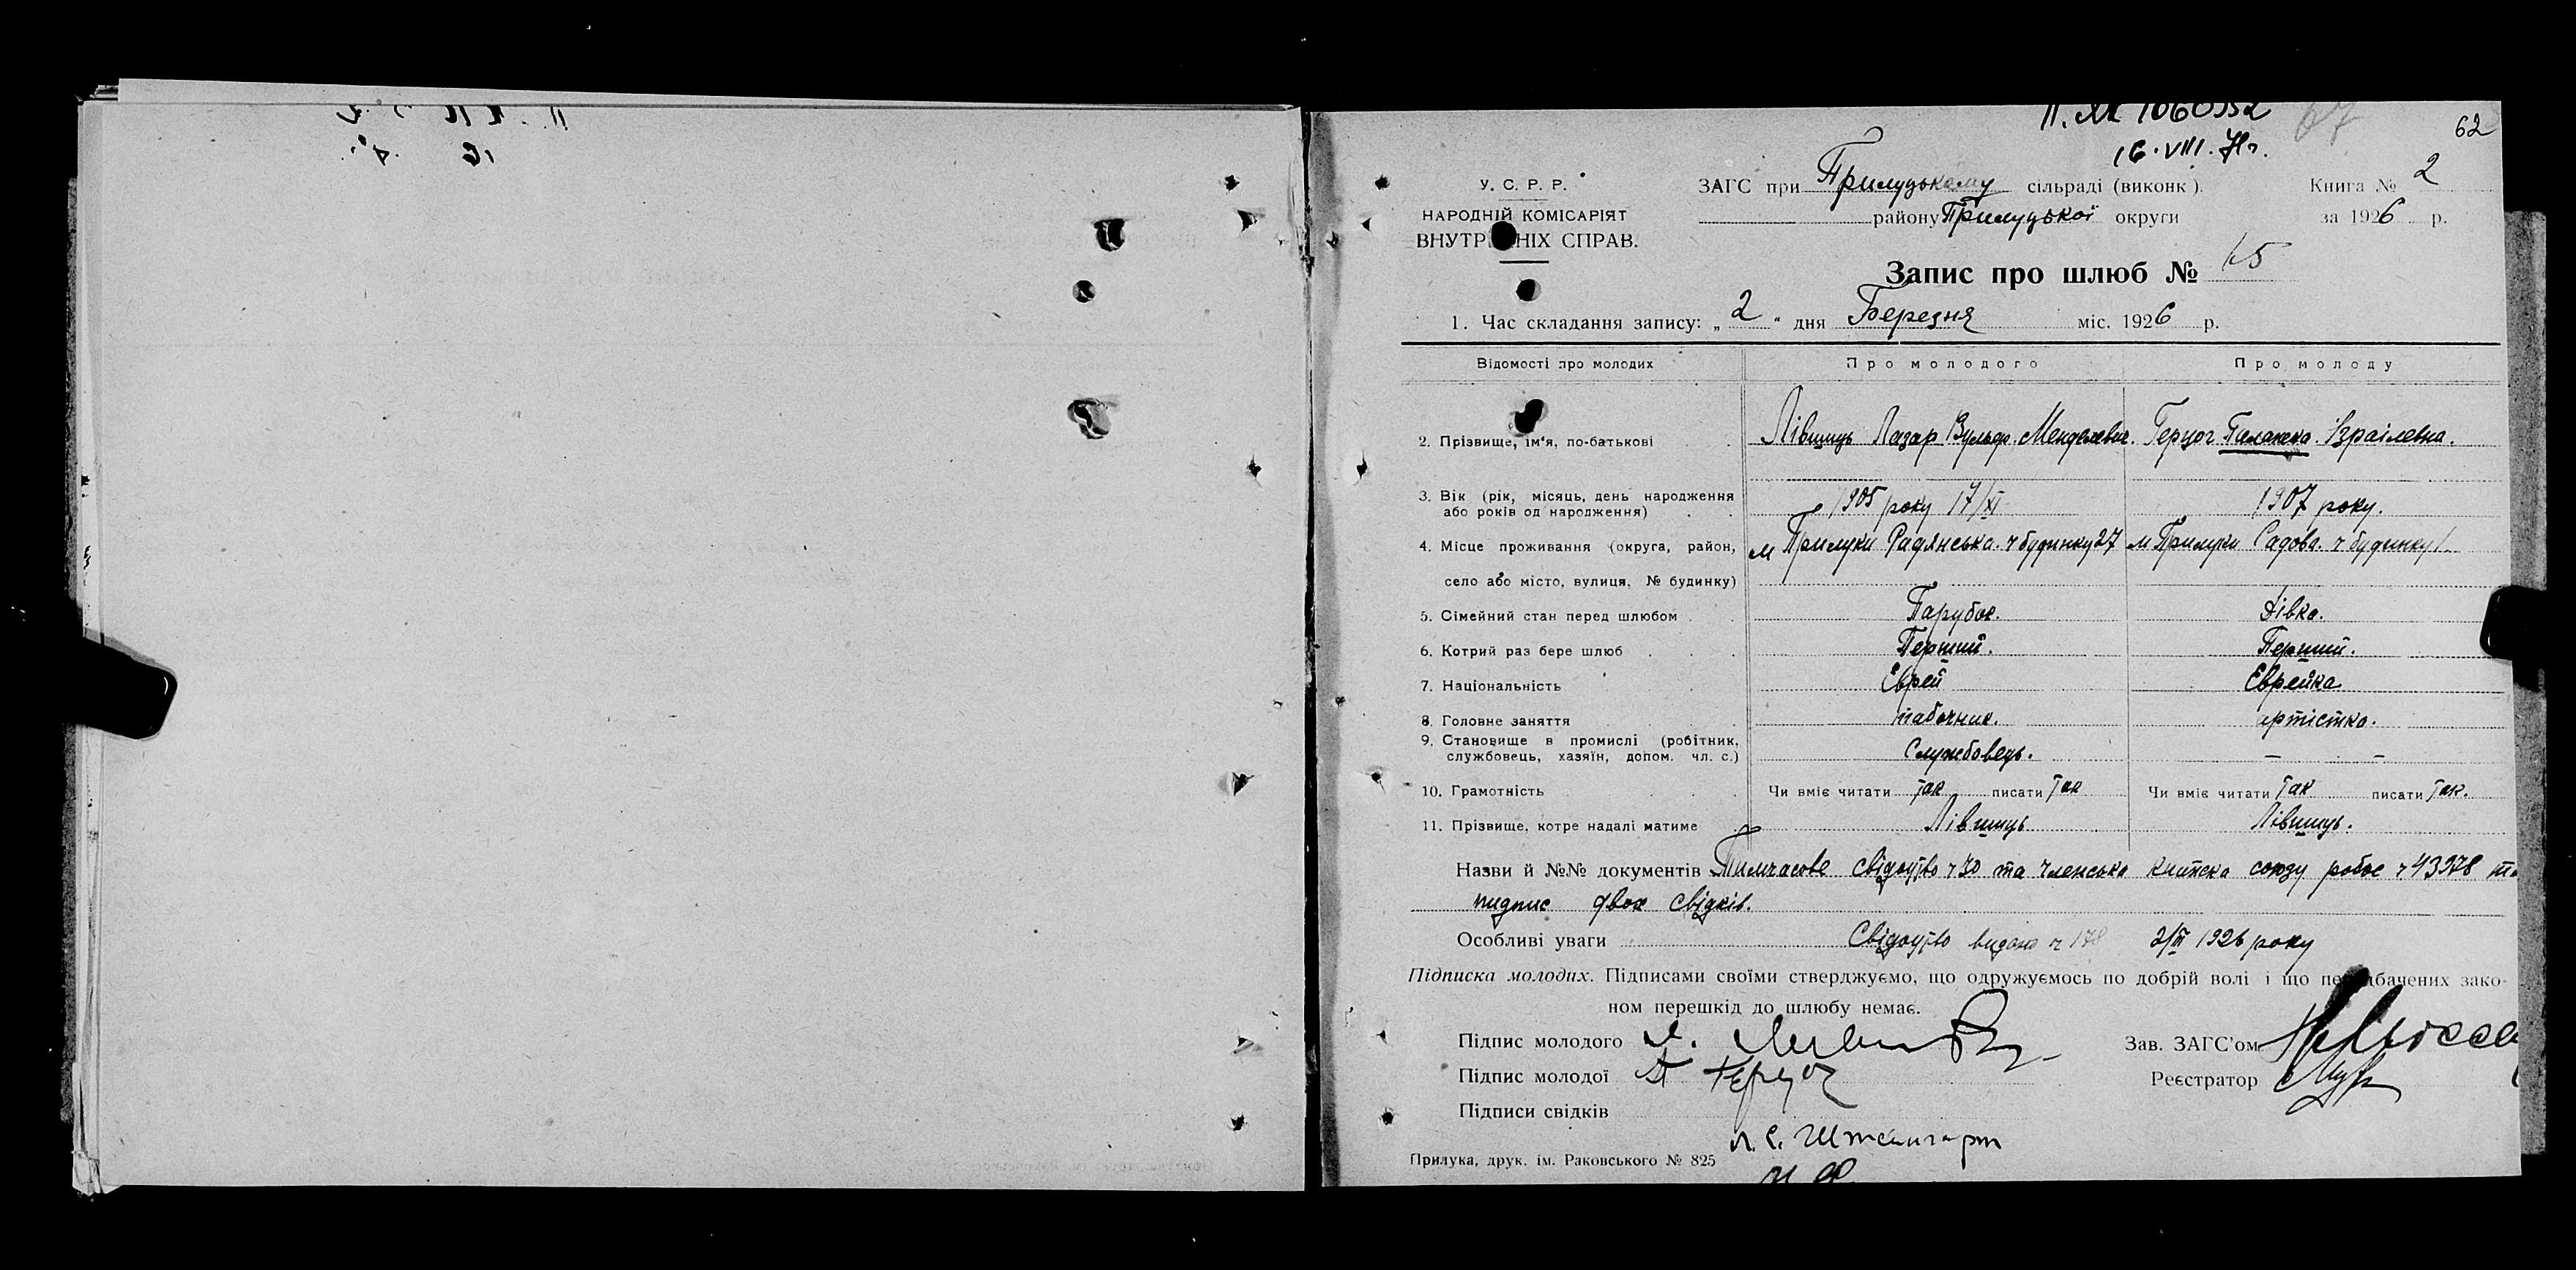 62
16.VIII.71г.
У. С. Р. Р.
НАРОДНІЙ КОМІСАРІЯТ
ВНУТР НІХ СПРАВ.
ЗАГС при Прилуцькому сільраді (виконк).
району Прилуцької округи
Книга № 2
за 1926 р.
Запис про шлюб № 65
1. Час складання запису: „2" дня Березня міс. 1926 р.
Відомості про молодих Про молодого Про молоду
2. Прізвище, ім'я, по-батькові Лівшиць Лазар Вульф. Менделевич. Герцог Ізраілевна.
3. Вік (рік, місяць, день народження 1905 року 17/XI 1907 року.
або років од народження)
4. Місце проживання (округа, район, м Прилуки Радянська. ч будинку 27 м Прилуки Садова. ч будинку 1
село або місто, вулиця, № будинку)
5. Сімейний стан перед шлюбом Парубок. дівка.
6. Котрий раз бере шлюб Перший. Перший.
7. Національність Єврей Єврейка
8. Головне заняття артістка.
9. Становище в промислі (робітник, Службовець. — —
службовець, хазяїн, допом. чл. с.)
10. Грамотність Чи вміє читати так писати так Чи вміє читати так писати так.
11. Прізвище, котре надалі матиме Лівшиць Лівшиць.
Назви й №№ документів Тимчасове свідоцтво ч 30 та членська книжка союзу робос ч 43978 та
підпис двох свідків.
Особливі уваги Свідоцтво видано ч 178 2/III 1926 року
Підписка молодих. Підписами своїми стверджуємо, що одружуємось по добрій волі і що передбачених зако-
ном перешкід до шлюбу немає.
Підпис молодого Л.
Зав. ЗАГС'ом
Підпис молодої Герцог
Реєстратор
Підписи свідків
Л. С. Штейнгарт
Прилука, друк. ім. Раковського № 825